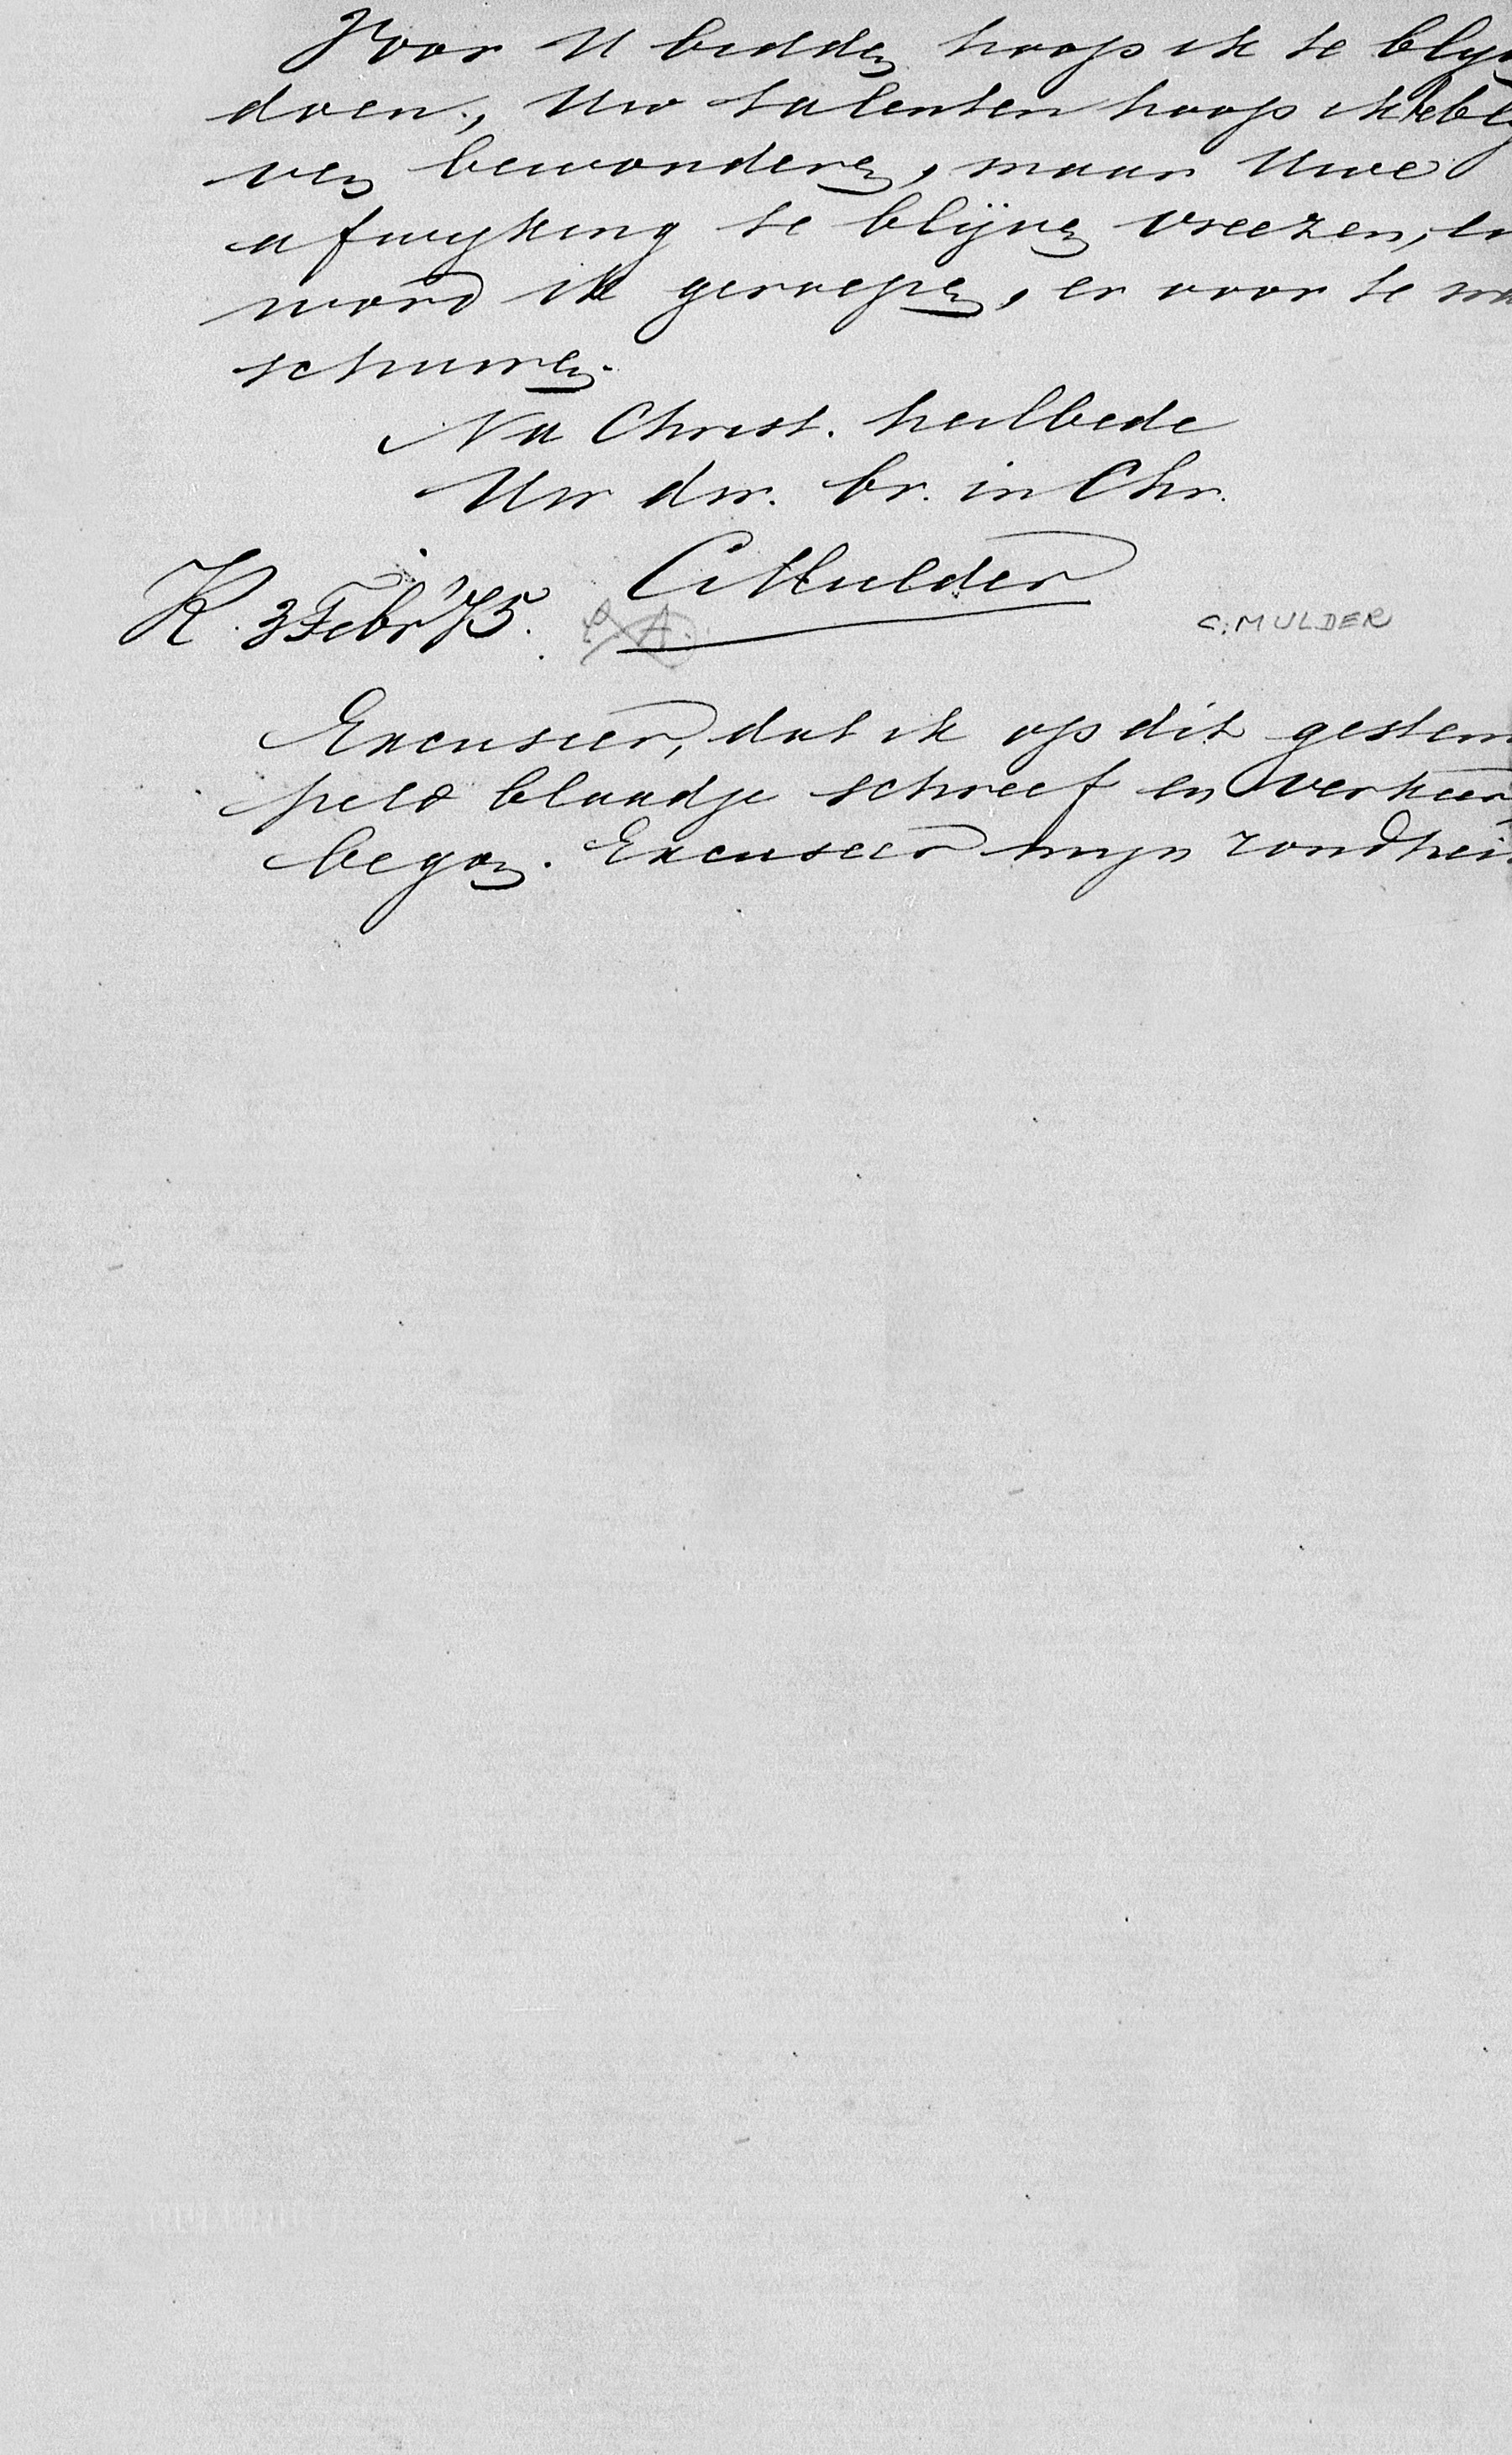 Voor U bidden hoop ik te blyv
doen, Uw talenten hoop ik te bly
ven bewonderen, maar Uwe
afwyking te blijven vreezen, en
word ik geroepen, er voor te wa
schuwen.
Na Christ. heilbede
Uw dw. br. in Chr.
C Mulder
K. 3 Febr '75.
C. MULDER
Excuseer, dat ik op dit gestem
peld blaadje schreef en verkeer
begon. Excuseer myn rondhei